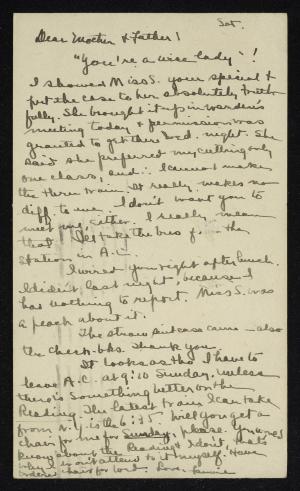 Sat.
Dear Mother & Father!
"You're a wise lady"!
I showed Miss S. your special &
put the case to her absolutely truth
fully. She brought it up in warden's
meeting today & permission was
granted to get there Wed. night. She
said she preferred my cutting only
one class, and ∴ I cannot make
the three train. It really makes no
diff. to me. I don't want you to
meet me, either. I really mean
that. I'll take the bus from the
station in A.C.
I wired you right after lunch.
I didn't last night, because I
had nothing to report. Miss S. was
a peach about it.
The straw suitcase came – also
the check-bks. Thank you.
It looks as tho I have to
leave A.C. at 9:10 Sunday, unless
there is something better on the
Reading. The latest train I can take
from N.Y. is the 6:15. Will you get a
chair for me for Sunday, please. You
know about the Reading & I don't, that's
why I don't attend to it myself. Have
ordered chair for Wed. Love,